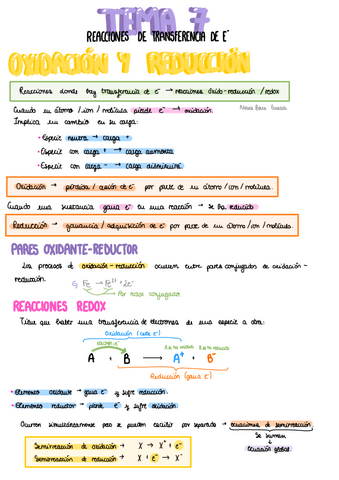 TEMA 7
REACCIONES DE TRANSFERENCIA DE E-
OXIDACIÓN Y REDUCCIÓN
Reacciones donde hay transferencia de e- → reacciones óxido-reducción / redox
Cuando un átomo / ion / molécula pierde e- → oxidación.
Implica un cambio en su carga:
• Especie neutra → carga +
• Especie con carga + → carga aumenta
• Especie con carga - → carga disminuye
Oxidación → pérdida / cesión de e- por parte de un átomo / ion / molécula.
Cuando una sustancia gana e- en una reacción → se ha reducido
Reducción → ganancia / adquisición de e- por parte de un átomo / ion / molécula.
PARES OXIDANTE-REDUCTOR
Los procesos de oxidación-reducción ocurren entre pares conjugados de oxidación-
reducción.
Fe → Fe2+ + 2e-
Par redox conjugado
REACCIONES REDOX
Tiene que haber una transferencia de electrones de una especie a otra:
Oxidación (cede e-)
electrón e-
A se ha oxidado
B se ha reducido
A + B → A+ + B-
Reducción (gana e-)
• Elemento oxidante → gana e- y sufre reducción.
• Elemento reductor → pierde e- y sufre oxidación
Ocurren simultáneamente pero se pueden escribir por separado → ecuaciones de semirreacción
Se suman
↓
Ecuación global
Semirreacción de oxidación → X → X+ + e-
Semirreacción de reducción → X + e- → X-